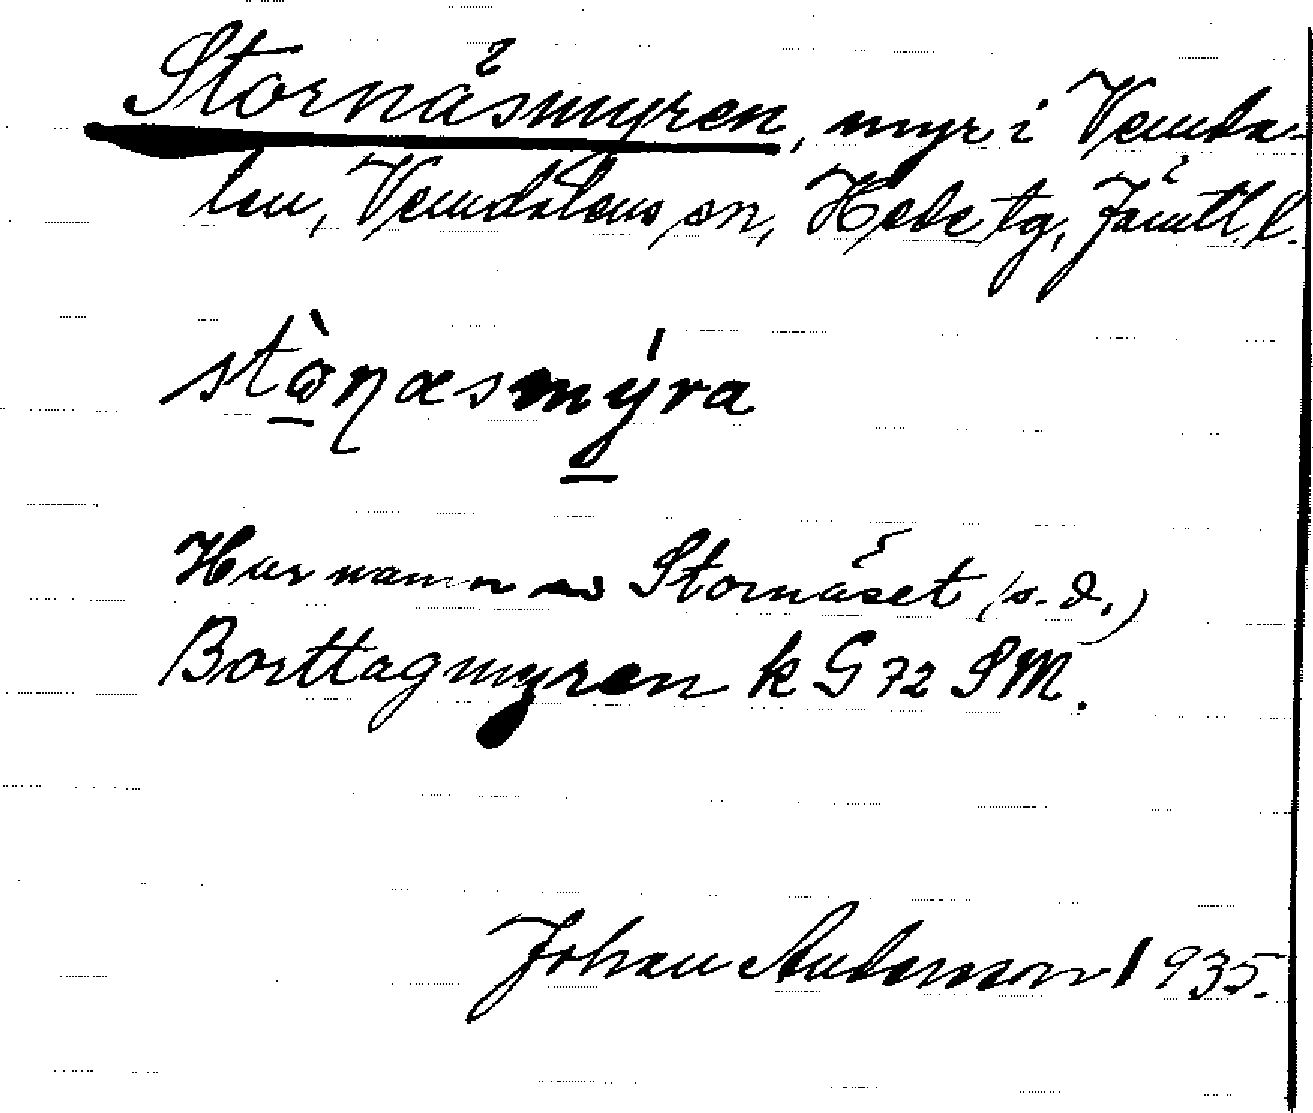 Stornäsmyren, myr i Vemda-
len, Vemdalens sn, Hede tg, Jämtl. l.
stòn̥æsmýra
Har namn av Stornäset (s.d.)
Borttagmyren k G 72 SM.
Johan Anderson 1935.